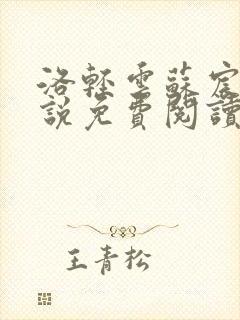 洛輕雲蘇宸
說免費閱讀
王青松